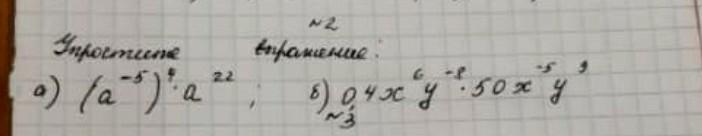 №2
Упростите выражение:
а) (a⁻⁵)⁴·a²² ; б) 0,4x⁶y⁻⁸·50x⁻⁵y⁹
№3